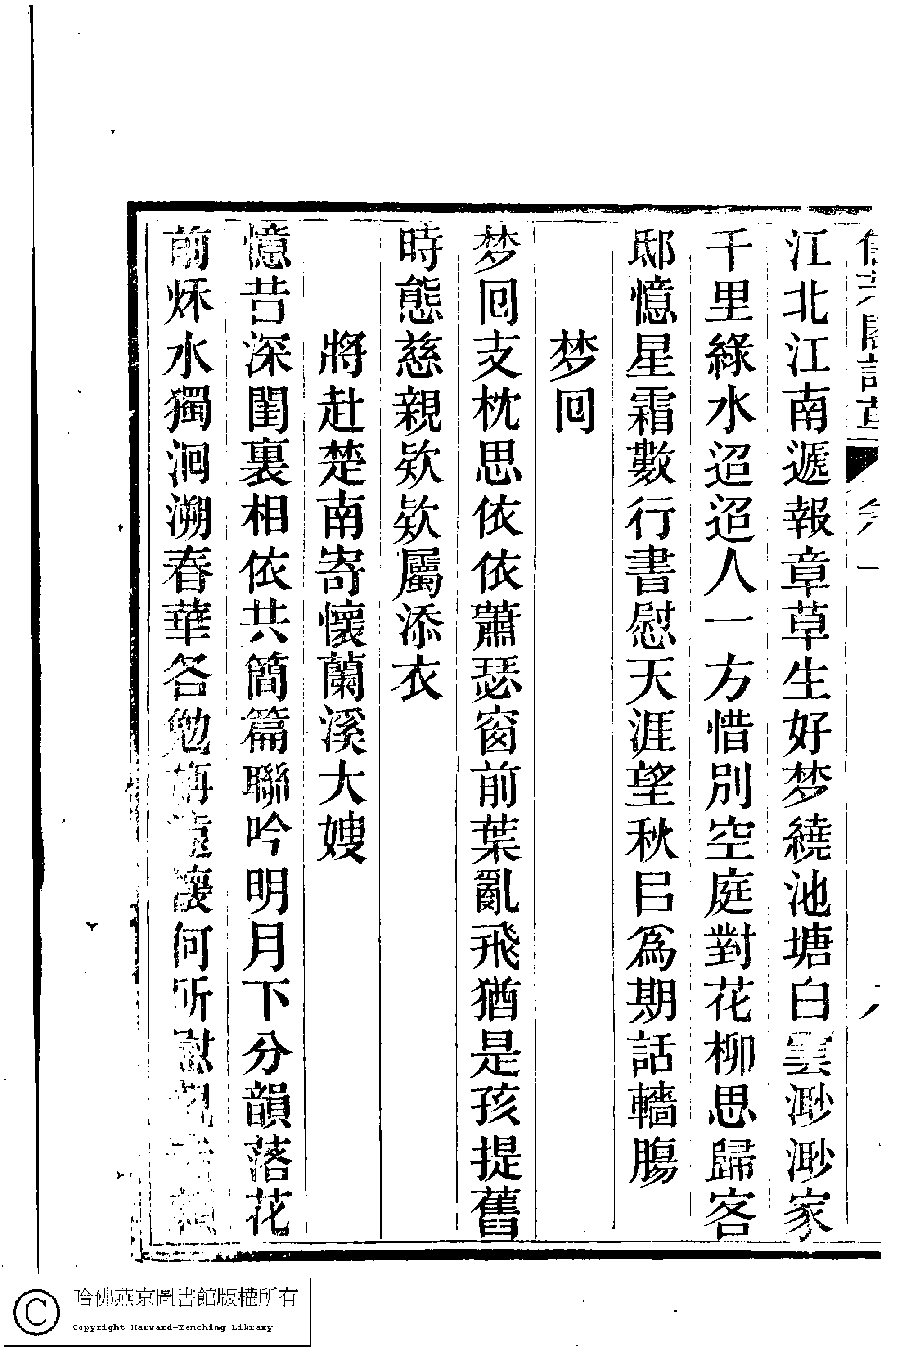 詩草 卷一
江北江南遞報章草生好梦繞池塘白雲渺渺家
千里綠水迢迢人一方惜別空庭對花柳思歸客
邸憶星霜數行書慰天涯望秋巳爲期話轖腸
梦回
梦回支枕思依依蕭瑟窗前葉亂飛猶是孩提舊
時態慈親欵欵屬添衣
將赴楚南寄懷蘭溪大嫂
憶昔深閨裏相依共簡篇聯吟明月下分韻落花
前秌水獨洄溯春華各勉旃遠懷何所慰
哈佛燕京圖書館版權所有
Copyright Harvard-Yenching Library